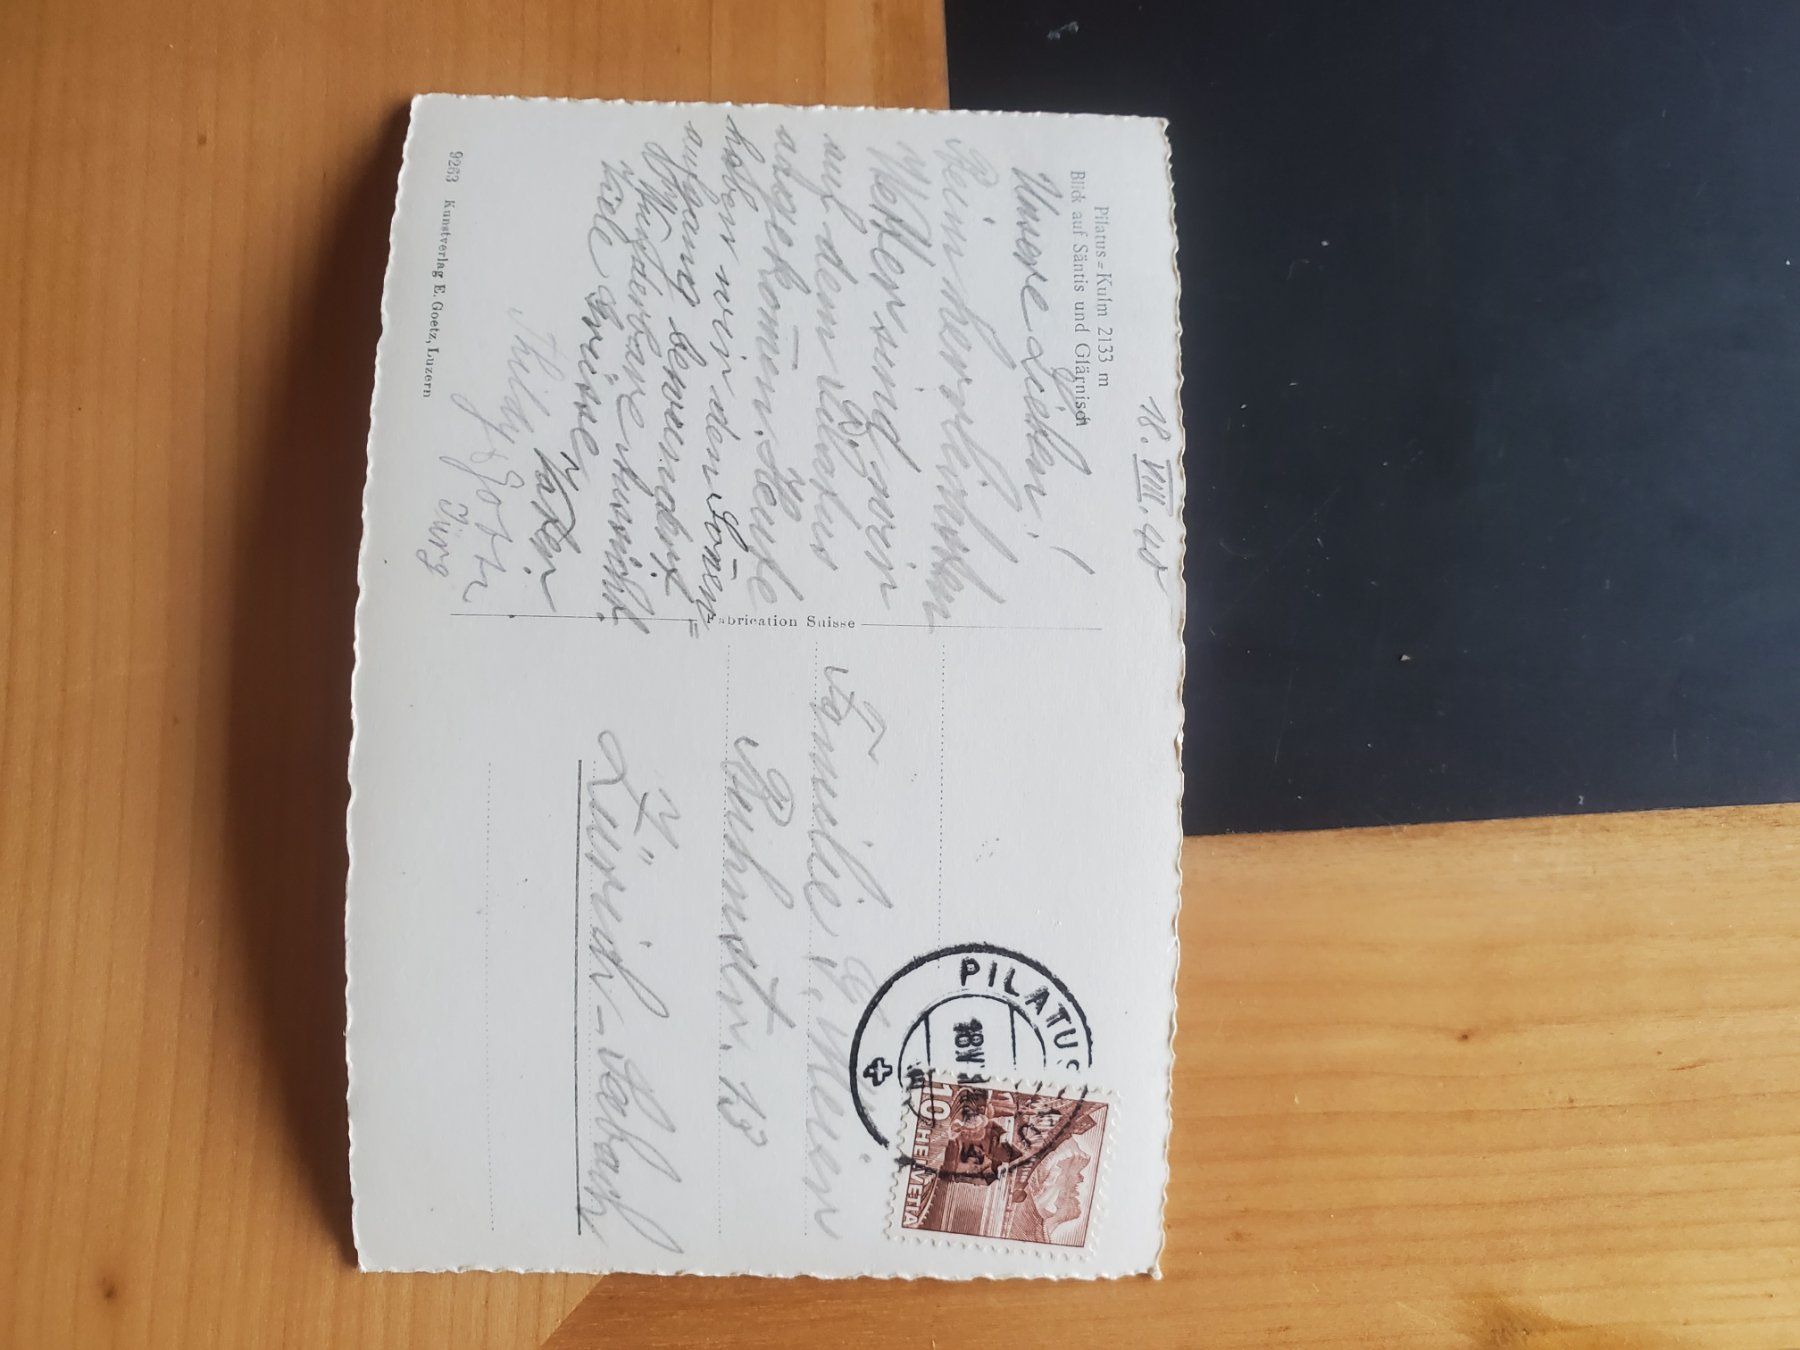 18. VIII. 40
Pilatus=Kulm 2133 m
Blick auf Säntis und Glärnisch
Unsere Lieben!
Beim herrlichsten
Wetter sind wir
auf dem Pilatus
angekom̄en. Heute
haben wir den Son̄en=
aufgang bewundert.
Wunderbare Aussicht.
Viele Grüsse
Vater
Thildy
Jürg
9263 Kunstverlag E. Goetz, Luzern
Fabrication Suisse
Familie
13
Zürich-Seebach
PILATUS
18 V
10
HELVETIA